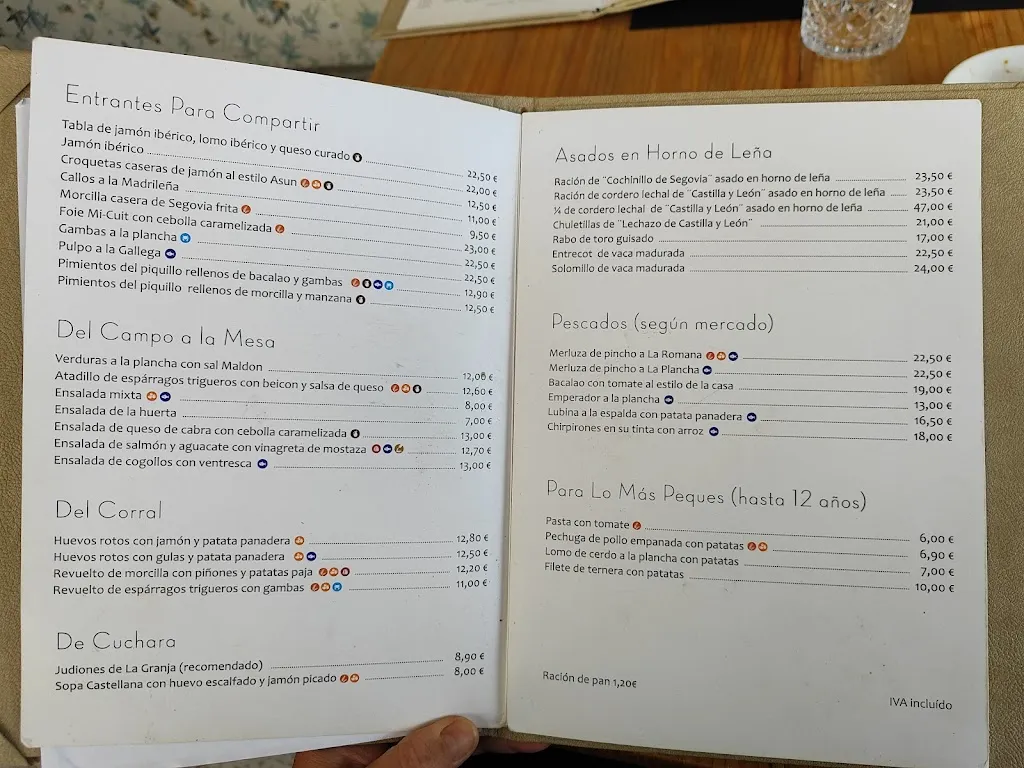 Entrantes Para Compartir
Tabla de jamón ibérico, lomo ibérico y queso curado 22,50 €
Jamón ibérico 22,00 €
Croquetas caseras de jamón al estilo Asun 12,50 €
Callos a la Madrileña 11,00 €
Morcilla casera de Segovia frita 9,50 €
Foie Mi-Cuit con cebolla caramelizada 23,00 €
Gambas a la plancha 22,50 €
Pulpo a la Gallega 22,50 €
Pimientos del piquillo rellenos de bacalao y gambas 12,90 €
Pimientos del piquillo rellenos de morcilla y manzana 12,50 €
Del Campo a la Mesa
Verduras a la plancha con sal Maldon 12,00 €
Atadillo de espárragos trigueros con beicon y salsa de queso 12,60 €
Ensalada mixta 8,00 €
Ensalada de la huerta 7,00 €
Ensalada de queso de cabra con cebolla caramelizada 13,00 €
Ensalada de salmón y aguacate con vinagreta de mostaza 12,70 €
Ensalada de cogollos con ventresca 13,00 €
Del Corral
Huevos rotos con jamón y patata panadera 12,80 €
Huevos rotos con gulas y patata panadera 12,50 €
Revuelto de morcilla con piñones y patatas paja 12,20 €
Revuelto de espárragos trigueros con gambas 11,00 €
De Cuchara
Judiones de La Granja (recomendado) 8,90 €
Sopa Castellana con huevo escalfado y jamón picado 8,00 €
Asados en Horno de Leña
Ración de "Cochinillo de Segovia" asado en horno de leña 23,50 €
Ración de cordero lechal de "Castilla y León" asado en horno de leña 23,50 €
¼ de cordero lechal de "Castilla y León" asado en horno de leña 47,00 €
Chuletillas de "Lechazo de Castilla y León" 21,00 €
Rabo de toro guisado 17,00 €
Entrecot de vaca madurada 22,50 €
Solomillo de vaca madurada 24,00 €
Pescados (según mercado)
Merluza de pincho a La Romana 22,50 €
Merluza de pincho a La Plancha 22,50 €
Bacalao con tomate al estilo de la casa 19,00 €
Emperador a la plancha 13,00 €
Lubina a la espalda con patata panadera 16,50 €
Chirpirones en su tinta con arroz 18,00 €
Para Lo Más Peques (hasta 12 años)
Pasta con tomate 6,00 €
Pechuga de pollo empanada con patatas 6,90 €
Lomo de cerdo a la plancha con patatas 7,00 €
Filete de ternera con patatas 10,00 €
Ración de pan 1,20€
IVA incluído